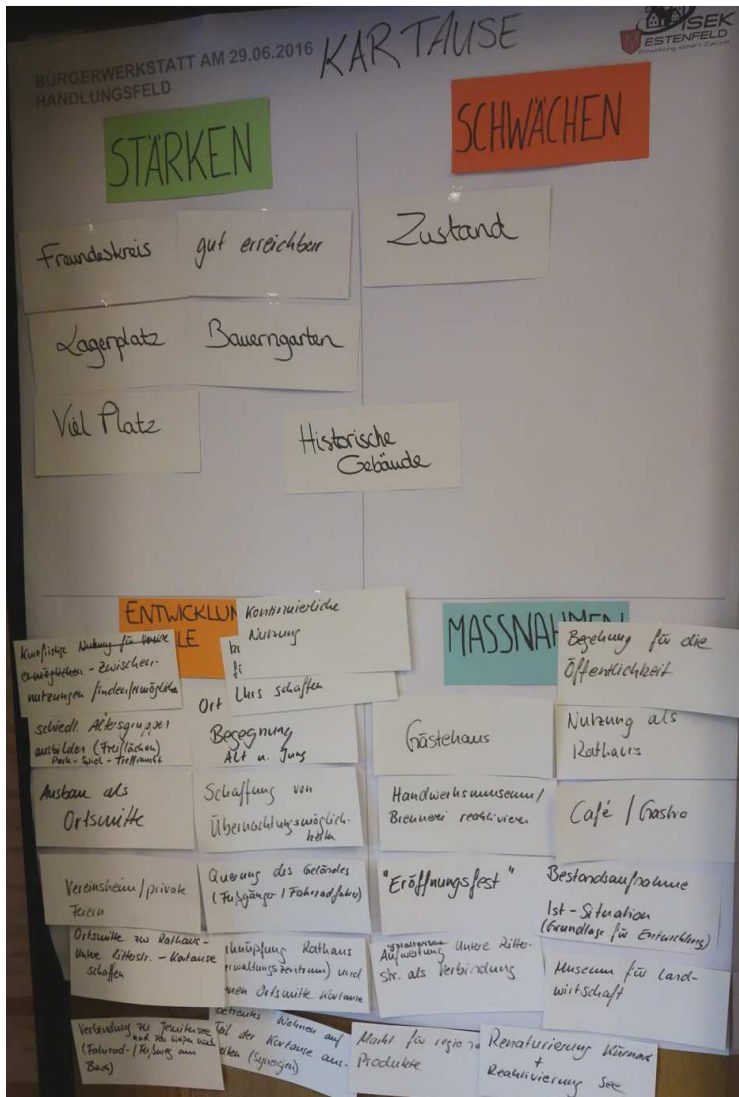 BÜRGERWERKSTATT AM 29.06.2016
HANDLUNGSFELD
KARTAUSE
ISEK
ESTENFELD
STÄRKEN
SCHWÄCHEN
Freundeskreis
gut erreichbar
Zustand
Lagerplatz
Bauerngarten
Viel Platz
Historische
Gebäude
ENTWICKLUN
LE
Kontinuierliche
Nutzung
MASSNAHMEN
Begehung für die
Öffentlichkeit
Kurzfristige Nutzung für Vereine
ermöglichen - Zwischen-
nutzungen finden/ermöglichen
Ort
schaffen
schiedl. Altersgruppen
ausbilden (Freiflächen)
Park - Spiel -
Begegnung
Alt u. Jung
Gästehaus
Nutzung als
Rathaus
Ausbau als
Ortsmitte
Schaffung von
Übernachtungsmöglich-
keiten
Handwerksmuseum/
Brennerei reaktivieren
Café / Gastro
Vereinsheim/private
Feiern
Querung des Geländes
(Fußgänger / Fahrradfahrer)
"Eröffnungsfest"
Bestandsaufnahme
Ist-Situation
(Grundlage für Entwicklung)
Ortsmitte zw Rathaus -
Untere Ritterstr. - Kartause
schaffen
knüpfung Rathaus
rwaltungszentrum) und
Ortsmitte Kartause
Aufwertung Untere Ritter-
str. als Verbindung
Museum für Land-
wirtschaft
Verbindung zu Jesuitensee
(Fahrrad-/Fußweg am
Bach)
Wohnen auf
Teil der Kartause aus-
(Synergien)
Markt für regiona
Produkte
Renaturierung Kürnach
+
Reaktivierung See